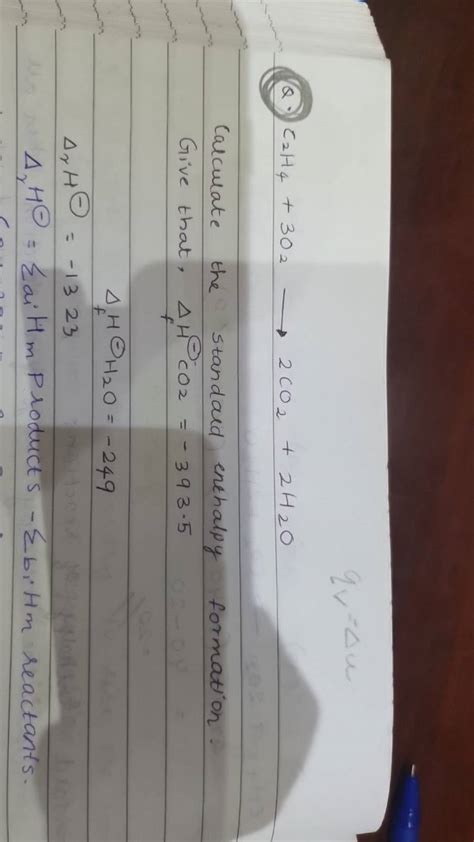 qv = Δu
Q. C2H4 + 3O2 ⟶ 2CO2 + 2H2O
Calculate the standard enthalpy formation.
Give that, ΔfH⊖CO2 = -393.5
ΔfH⊖H2O = -249
ΔrH⊖ = -1323
ΔrH⊖ = ΣaiHm Products - ΣbiHm reactants.